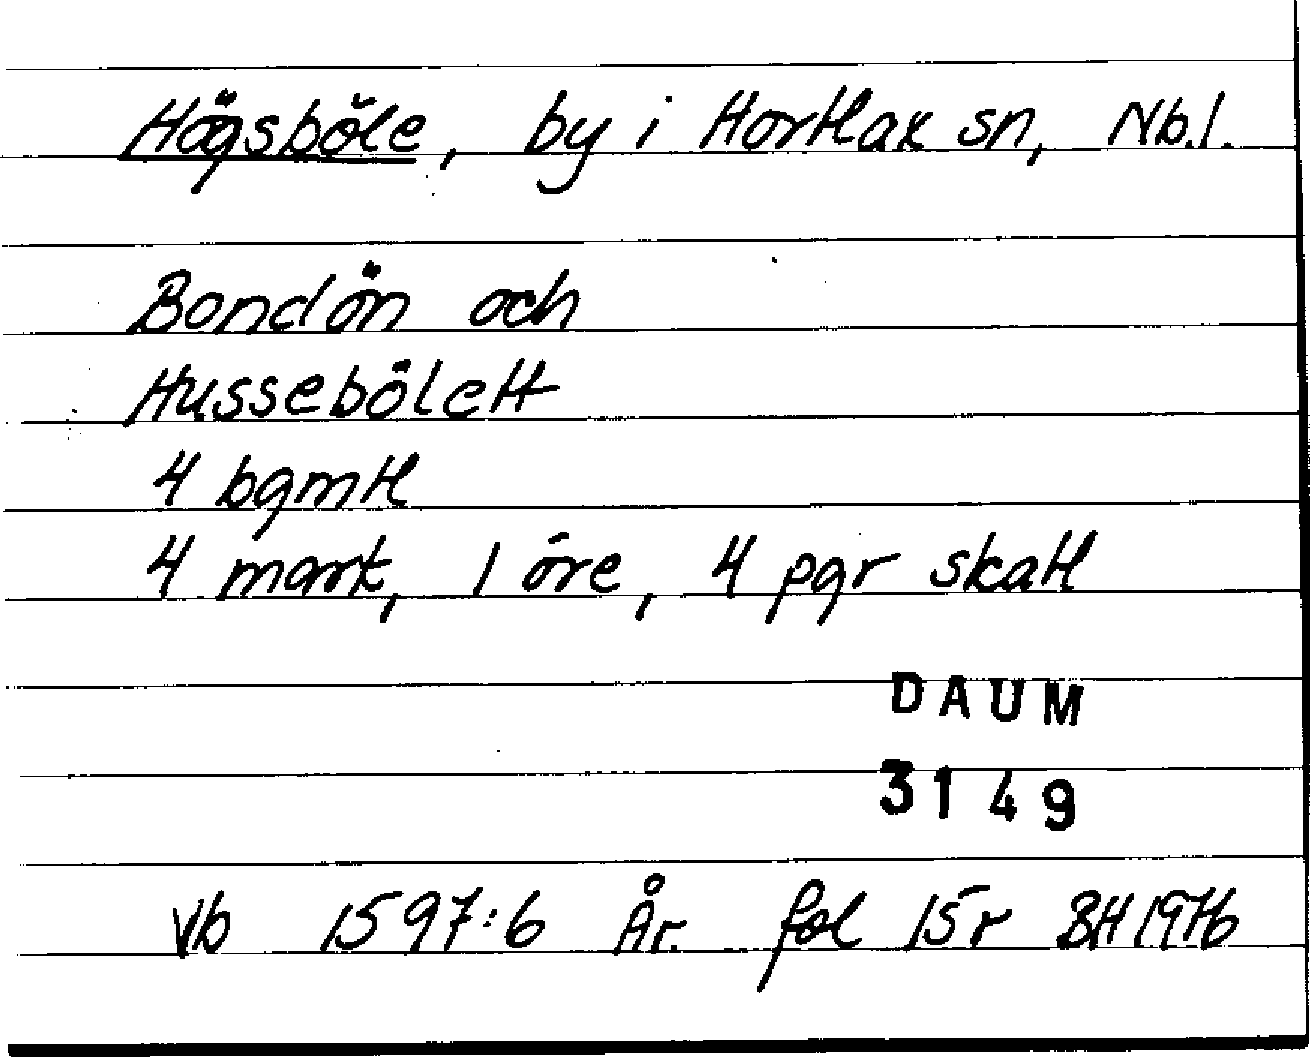 Högsböle, by i Hortlax sn, Nb.l.
Bondön och
Hussebölett
4 bgmtl
4 mark, 1 öre, 4 pgr skatt
DAUM
3149
Vb 1597:6 År. fol 15r BH 1976